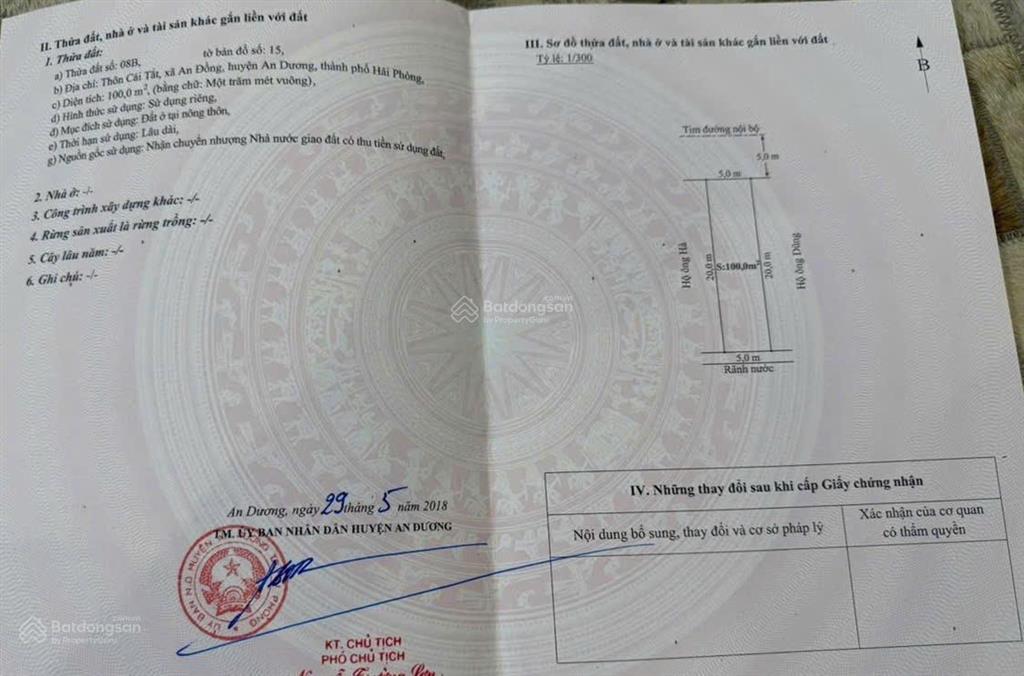 II. Thửa đất, nhà ở và tài sản khác gắn liền với đất
1. Thửa đất:
a) Thửa đất số: 08B, tờ bản đồ số: 15,
b) Địa chỉ: Thôn Cái Tắt, xã An Đồng, huyện An Dương, thành phố Hải Phòng,
c) Diện tích: 100,0 m², (bằng chữ: Một trăm mét vuông),
d) Hình thức sử dụng: Sử dụng riêng,
đ) Mục đích sử dụng: Đất ở tại nông thôn,
e) Thời hạn sử dụng: Lâu dài,
g) Nguồn gốc sử dụng: Nhận chuyển nhượng Nhà nước giao đất có thu tiền sử dụng đất,
2. Nhà ở: -/-
3. Công trình xây dựng khác: -/-
4. Rừng sản xuất là rừng trồng: -/-
5. Cây lâu năm: -/-
6. Ghi chú: -/-
An Dương, ngày 29 tháng 5 năm 2018
TM. ỦY BAN NHÂN DÂN HUYỆN AN DƯƠNG
KT. CHỦ TỊCH
PHÓ CHỦ TỊCH
III. Sơ đồ thửa đất, nhà ở và tài sản khác gắn liền với đất
Tỷ lệ: 1/300
B
Tim đường nội bộ
5,0 m
5,0 m
Hộ ông Hà
20,0 m
S:100,0m²
20,0 m
Hộ ông Dũng
5,0 m
Rãnh nước
IV. Những thay đổi sau khi cấp Giấy chứng nhận
Nội dung bổ sung, thay đổi và cơ sở pháp lý
Xác nhận của cơ quan
có thẩm quyền
Batdongsan
by PropertyGuru
Batdongsan
by PropertyGuru